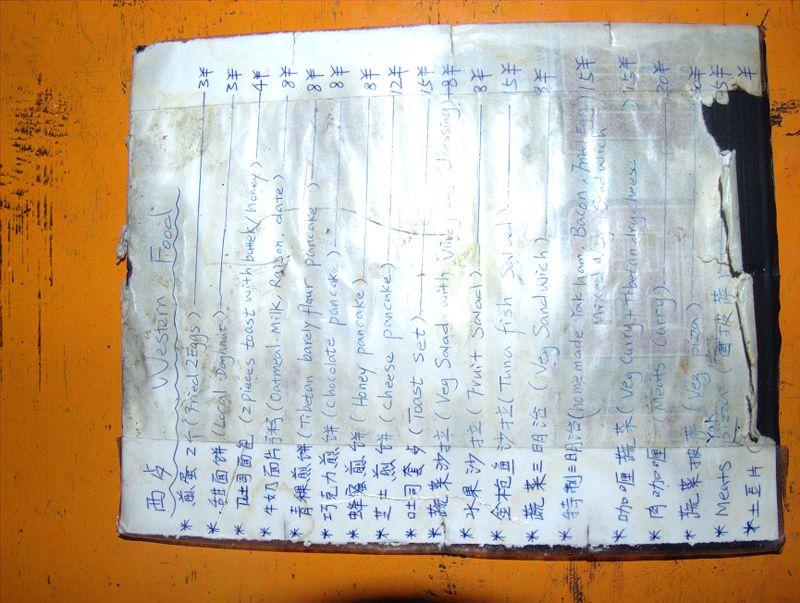 西点 Western Food
* 煎蛋2个 (Fried 2 Eggs) 3半
* 甜面饼 (Local Doghnut) 3半
* 吐司面包 (2 pieces toast with butter/honey) 4半
* 牛奶面片粥 (Oatmeal Milk, Raison, date) 8半
* 青稞煎饼 (Tibetan barely flour pancake) 8半
* 巧克力煎饼 (chocolate pancake) 8半
* 蜂蜜煎饼 (Honey pancake) 8半
* 芝士煎饼 (cheese pancake) 12半
* 吐司套 (Toast set) 15半
* 蔬菜沙拉 (Veg Salad with dressing) 8半
* 水果沙拉 (Fruit Salad) 8半
* 金枪鱼沙拉 (Tuna fish Salad) 15半
* 蔬菜三明治 (Veg Sandwich) 8半
* 特制三明治 (homemade Yak ham, Bacon, fried Egg) 15半
Mixed Sandwich
* 咖喱蔬菜 (Veg curry + Tibetan dry cheese) 15半
* 肉咖喱 (Meats curry) 20半
* 蔬菜披萨 (Veg pizza)
* Meats Yak pizza
* 土豆片 (